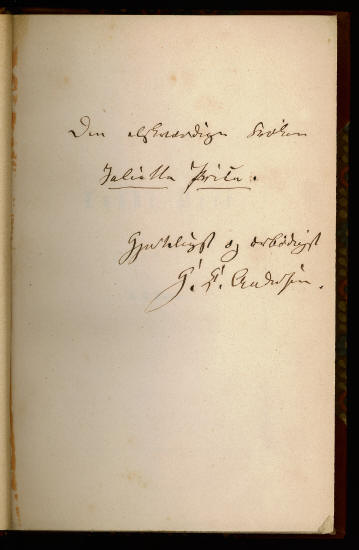 Den elskværdige Frøken
Juliette Price.
Hjerteligst og ærbødigst
H. C. Andersen.